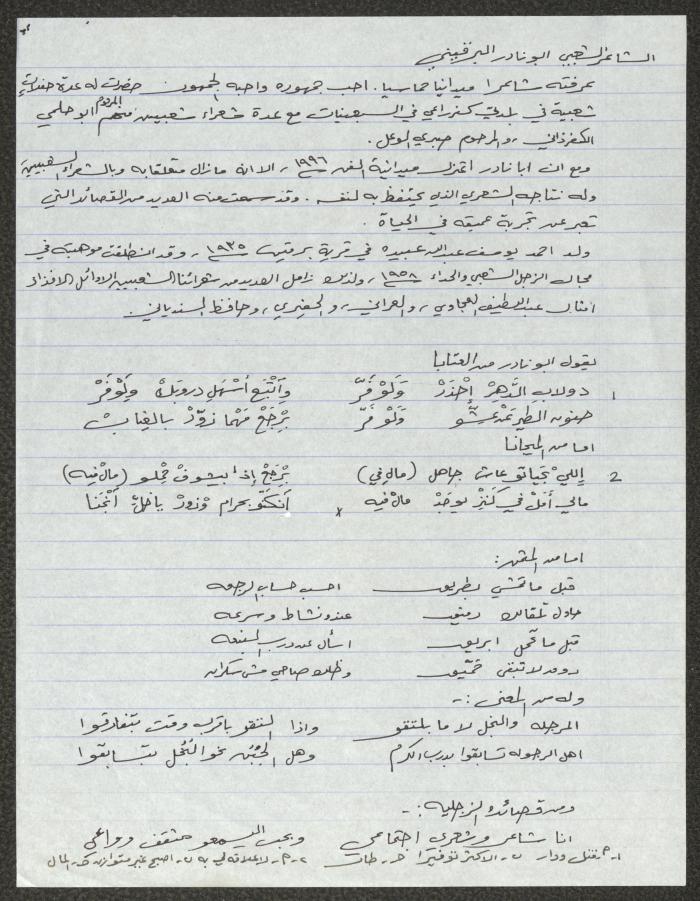 الشاعر الشعبي ابو نادر البرقيني
عرفته شاعرا ميدانيا حماسيا. احب جمهوره واحبه الجمهور حضرت له عدة حفلات
شعبية في بلدتي كفرراعي في السبعينات مع عدة شعراء شعبيين منهم المرحوم ابو حلمي
الكفرذاني، والمرحوم صبري الوعل.
ومع ان ابا نادر اعتزل ميدانية الفن ١٩٩٦، الا انه مازال متعلقا به وبالشعراء الشعبيين
وله نتاجه الشعري الذي يحتفظ به لنفسه. وقد سمعت منه العديد من القصائد التي
تعبر عن تجربة عميقه في الحياة.
ولد احمد يوسف عبدالله عبيده في قرية برقين ١٩٣٥، وقد انطلقت موهبته في
مجال الزجل الشعبي والحداء ١٩٥٨، ولذلك زامل العديد من شعرائنا الشعبيين الاوائل الافذاذ
امثال عبد اللطيف العجاوي، والعراني، والجفيري، وحافظ السندياني.
يقول ابو نادر من العتابا
1 دولاب الدهر إحذر وَلَوْ فَرّ وإتْبَع أسْهَل دروبك ولَوْ فَرْ
صنوف الطير عَ عشّو وَلَوْ فَرّ بِرْجَعْ مَهْما زوّدْ بالغياب
اما من الميجانا
2 إللي بحياتو عاش جاهل (مال في) بِرْجَعْ إذا بيشوفْ حْملو (مال فيه)
مالي أمَلْ في كَنِزْ يوجَدْ مالْ فيه x حرام وْزودْ ياخلّ
اما من المثمن:
قبل ما تمشي بطريق احسب حساب الرجعه
حاول تلقالك رفيق عندو نشاط وسرعه
قبل ما تحمل ابريق اسأل عن درب النبعه
لا تبقى وظلك صاحي مش سكران
وله من المعنى:-
المرجله والنجل لا ما بلتقو واذا التقو باقرب وقت بتفارقوا
اهل الرجوله تسابقوا بدرب الكرم وهل الجُبُن نحو البُخل بتسابقوا
ومن قصائده الزجليه:-
انا شاعر وشعري اجتماعي وبحب اليسمعو مثقف وواعي